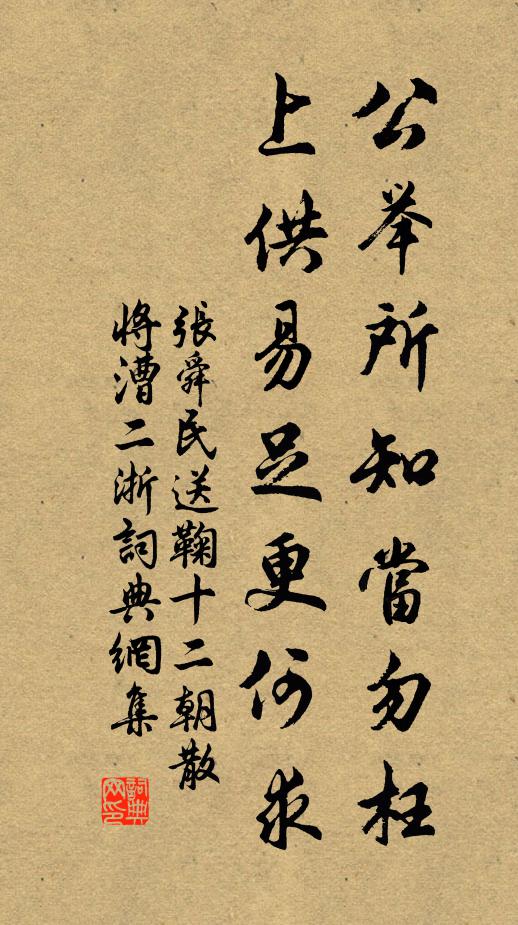 公举所知當勿枉
上供易足更何求
張舜民送鞠十二朝散
將漕二浙詞典網集
詞典
网印